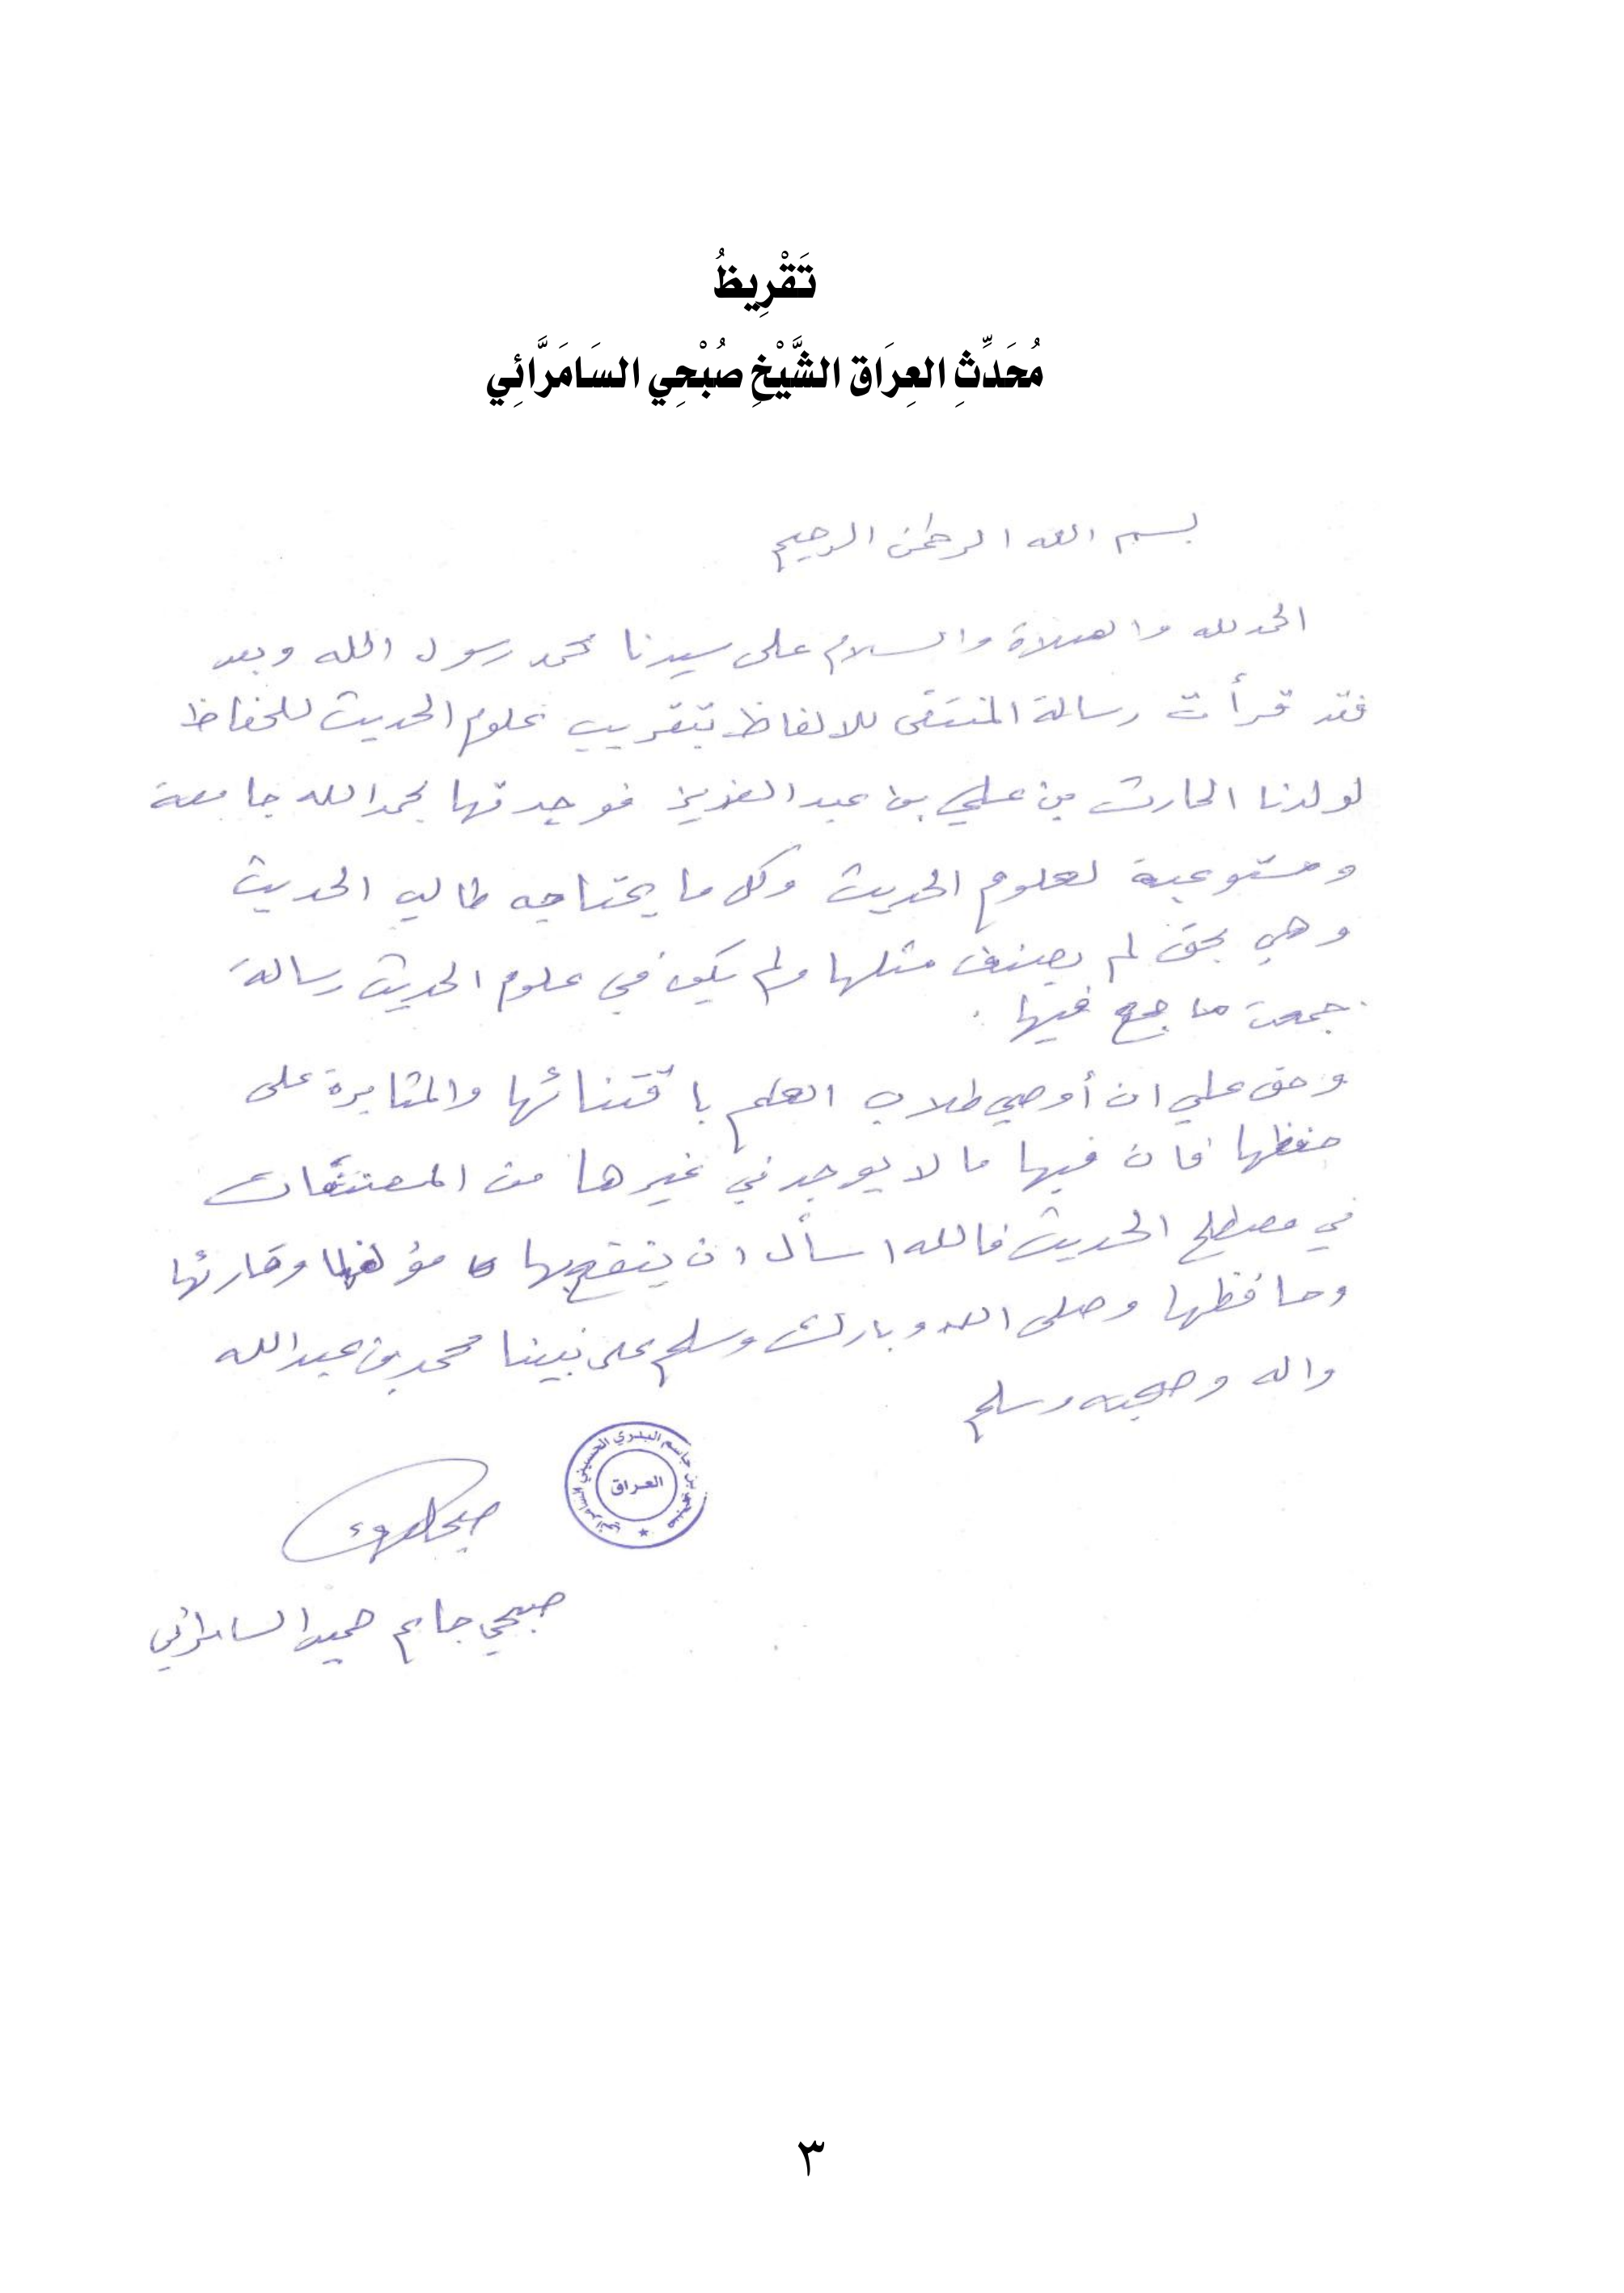 تَقْرِيظُ
مُحَدِّثِ العِرَاق الشَّيْخِ صُبْحِي السَامَرَّائِي
بسم الله الرحمن الرحيم
الحمد لله والصلاة والسلام على سيدنا محمد رسول الله وبعد
فقد قرأت رسالة المنتقى للالفاظ بتقريب علوم الحديث للحفاظ
لولدنا الحارث بن علي بن عبد العزيز فوجدتها بحمد الله جامعة
ومستوعبة لعلوم الحديث وكل ما يحتاجه طالب الحديث
وهي بحق لم يصنف مثلها ولم يكن في علوم الحديث رسالة
جمعت ما جمع فيها .
وحق علي ان أوصي طلاب العلم باقتنائها والمثابرة على
حفظها فان فيها ما لا يوجد في غيرها من المصنفات
في مصطلح الحديث فالله اسأل ان ينفع بها مؤلفها وقارئها
وحافظها وصلى الله وبارك وسلم على نبينا محمد بن عبد الله
واله وصحبه وسلم
صبحي بن جاسم البدري الحسيني السامرائي
العراق
صبحي جاسم حميد السامرائي
٣